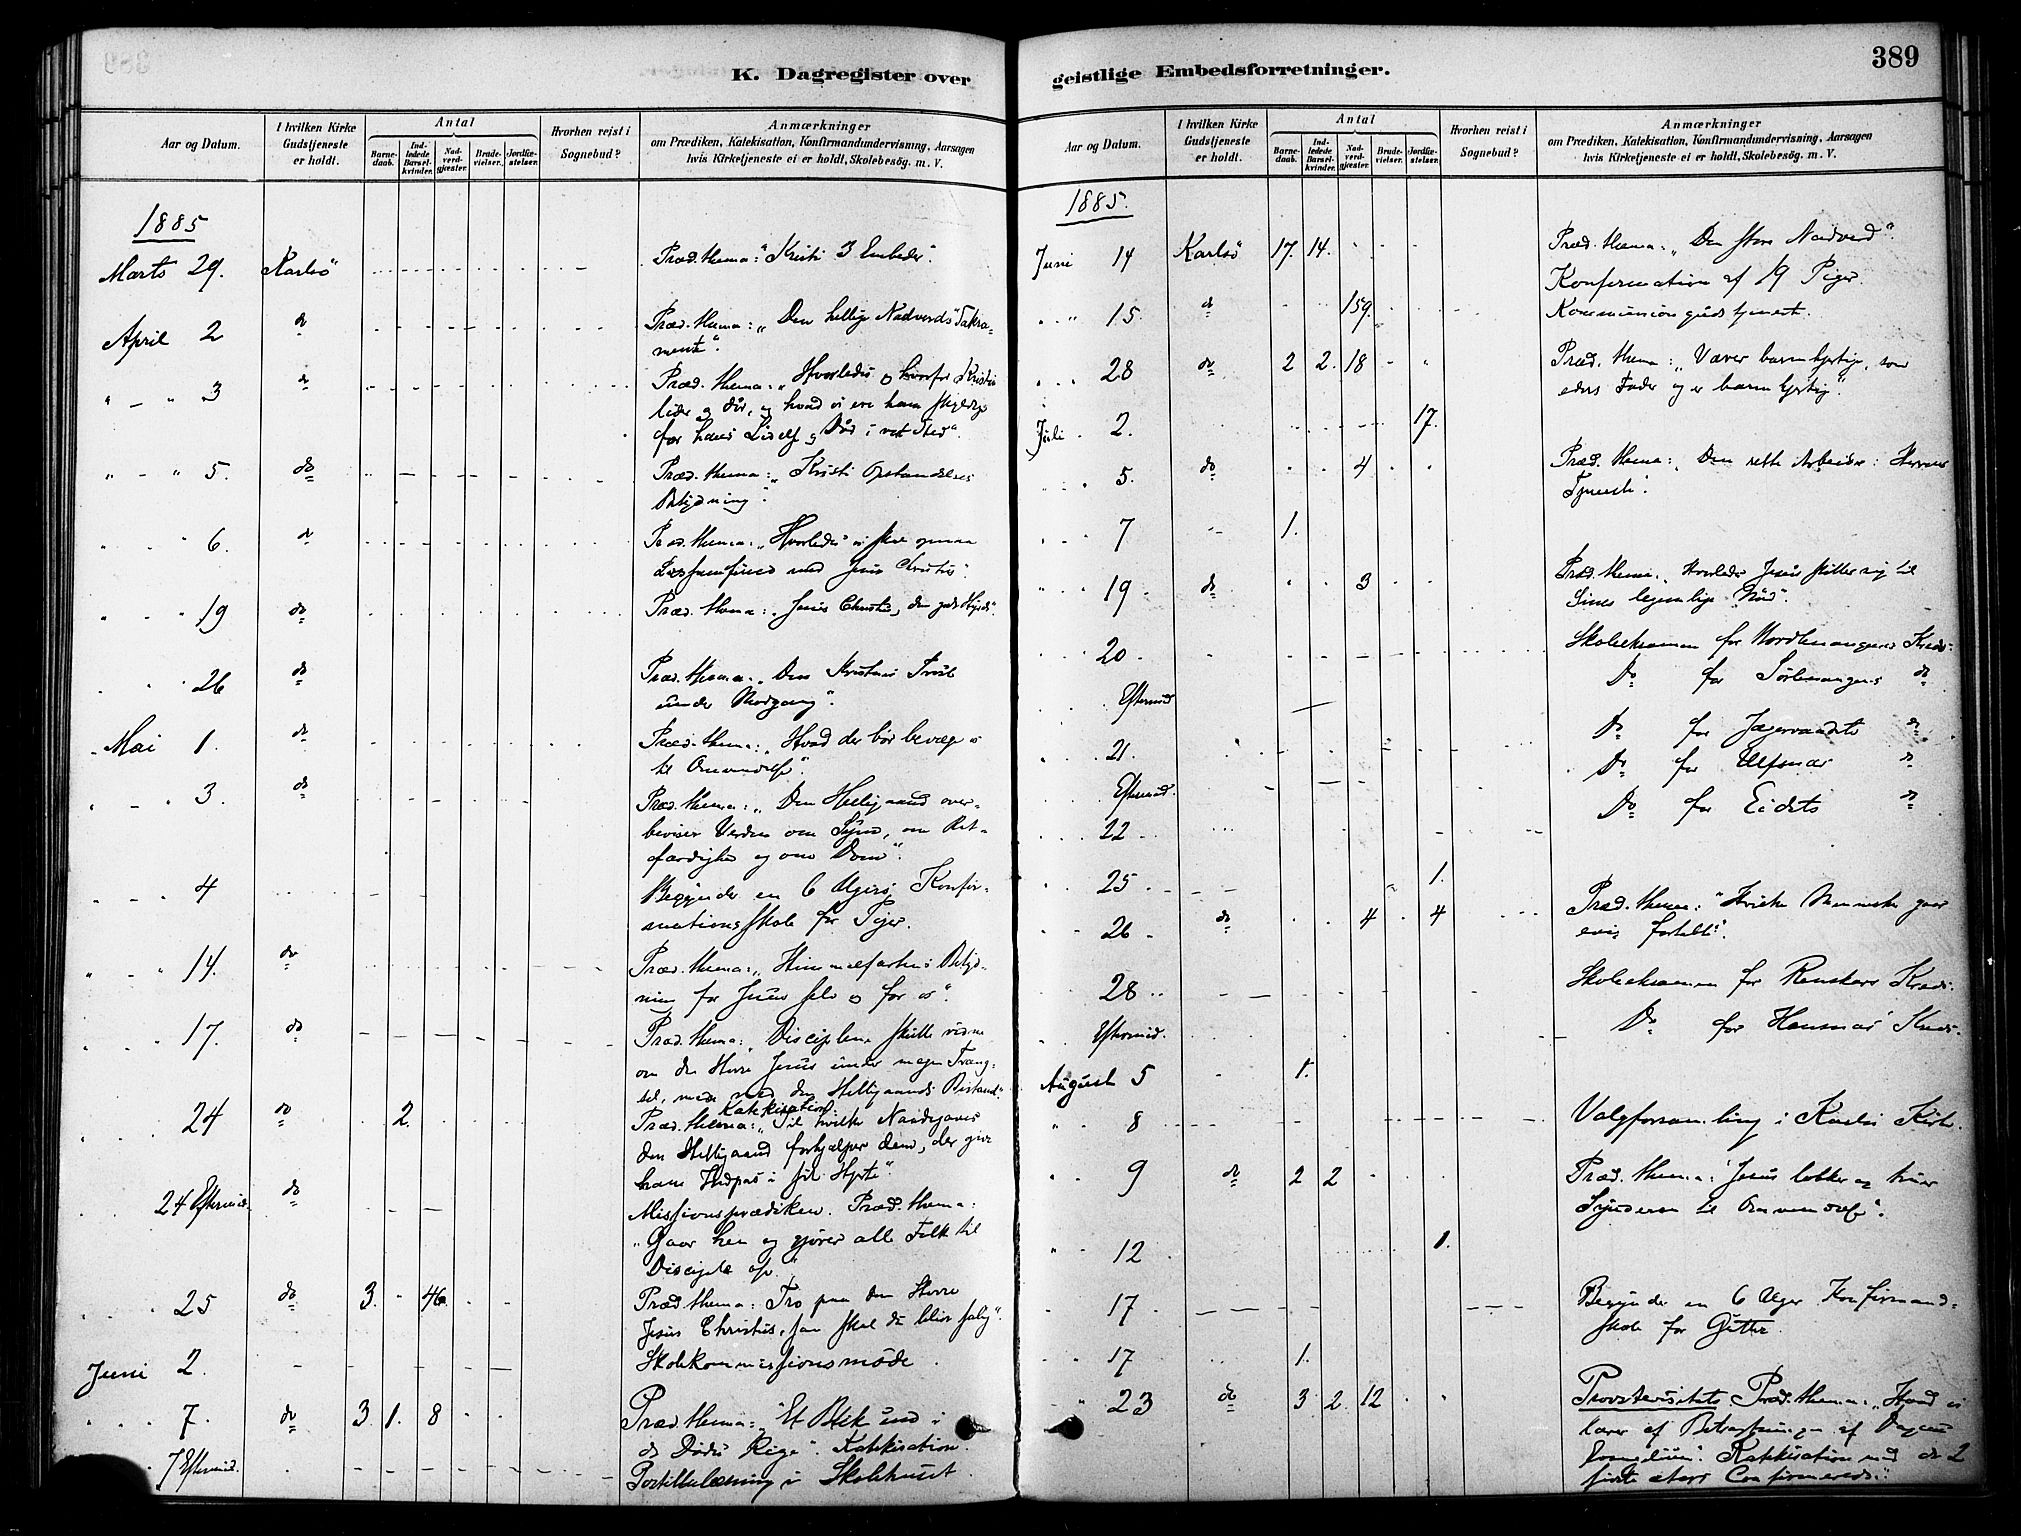 389
K. Dagregister over
geistlige Embedsforretninger.
Aar og Datum.
I hvilken Kirke
Gudstjeneste
er holdt.
Antal
Barne-
daab.
Ind-
ledede
Barsel-
kvinder.
Nad-
verd-
gjæster.
Brude-
vielser.
Jordfæ-
stelser.
Hvorhen reist i
Sognebud?
Anmærkninger
om Prædiken, Katekisation, Konfirmandundervisning, Aarsagen
hvis Kirketjeneste ei er holdt, Skolebesög. m. V.
1885
Marts 29. Karlsö Præd. thema: "Kristi 3 Embeder".
April 2 do Præd. thema: "Den hellige Nadverds Sakra-
mente".
" - " 3 do Præd. thema: "Hvorledes og hvorfor Kristus
lider og dör, og hvad vi ere ham skyldige
for hans Lidelse og Död i vort Sted".
" - " 5. do Præd. thema: "Kristi Opstandelses
Betydning".
" " 6. do Præd. thema: "Hvorledes vi skal opnaa
Livssamfund med Jesus Christus".
" - " 19 do Præd. thema: "Jesus Christus, den gode Hyrde".
" " 26 do Præd. thema: "Den Kristnes Tröst
under Modgang".
Mai 1. do Præd. thema: "Hvad der bör bevæge os
til Omvendelse".
" - " 3. do Præd. thema: "Den Helligaand over-
beviser Verden om Synd, om Ret-
færdighed og om Dom".
" - " 4 Begynder en 6 Ugers Konfir-
mationsskole for Piger.
" - " 14. do Præd. thema: "Himmelfartens Betyd-
ning for Jesus selv og for os".
" " 17. do Præd. thema: "Disciplene skulle vidne
om den Herre Jesus under megen Træng-
sel, men med den Helligaands Bistand".
Katekisation.
" " 24 do 2. Præd. thema: "Til hvilke Naadegaver
den Helligaand forhjælper dem, der give
ham Indpas i sit Hjerte".
24 Eftermid. do Missionsprædiken. Præd. thema:
"Gaar hen og gjörer alle Folk til
Disciple osv."
" " 25 do 3. - 46. Præd. thema: Tro paa den Herre
Jesus Christus, saa skal du blive salig".
Juni 2. Skolekommissionsmöde.
" " 7. do 3. 1. 8 Præd. thema: "Et Blik ind i
de Dödes Rige". Katekisation.
7 Eftermid. Postillelæsning i Skolehuset.
Aar og Datum.
I hvilken Kirke
Gudstjeneste
er holdt.
Antal
Barne-
daab.
Ind-
ledede
Barsel-
kvinder.
Nad-
verd-
gjæster.
Brude-
vielser.
Jordfæ-
stelser.
Hvorhen reist i
Sognebud?
Anmærkninger
om Prædiken, Katekisation, Konfirmandundervisning, Aarsagen
hvis Kirketjeneste ei er holdt, Skolebesög. m. V.
1885.
Juni 14 Karlsö 17. 14. Præd. thema: "Den store Nadverd".
Konfirmation af 19 Piger.
" 15. do 159. Kommuniongudstjeneste.
" 28 do 2 2. 18 Præd. thema: "Værer barmhjertige, som
eders Fader og er barmhjertig".
Juli 2. 17.
" 5. do 4 Præd. thema: Den rette Arbeide i Herrens
Tjeneste.
" 7 1.
" 19 do 3 Præd. thema: Hvorledes Jesus stiller sig til
Sines legemlige Nöd".
" 20 Skoleeksamen for Nordlenangens Kreds.
Eftermid Do for Sörlenangens do
21. Do for Jægervandets do
Eftermid. Do for Ulfsnæs do
22 Do for Eidets do
25. 1.
26 do 4 4 Præd. thema: "Hvilke Mennesker gaar
evig fortabt".
28 Skoleeksamen for Renskars Kreds.
Eftermid. Do for Hansnæs Kreds.
August 5 1.
" 8 Valgforsamling i Karlsö Kirke.
" 9 do 2 2 Præd. thema: Jesus lokker og truer
Synderen til Omvendelse".
" 12 1.
" 17 Begynder en 6 Uger Konfirmand-
skole for Gutter.
" 17 1.
" 23 do 3 2. 12 Provstevisitats Præd. thema: "Hvad vi
lærer af Betragtningen af Dagens
Evangelium". Katekisation med de 2
sidste Aars Confirmerede.